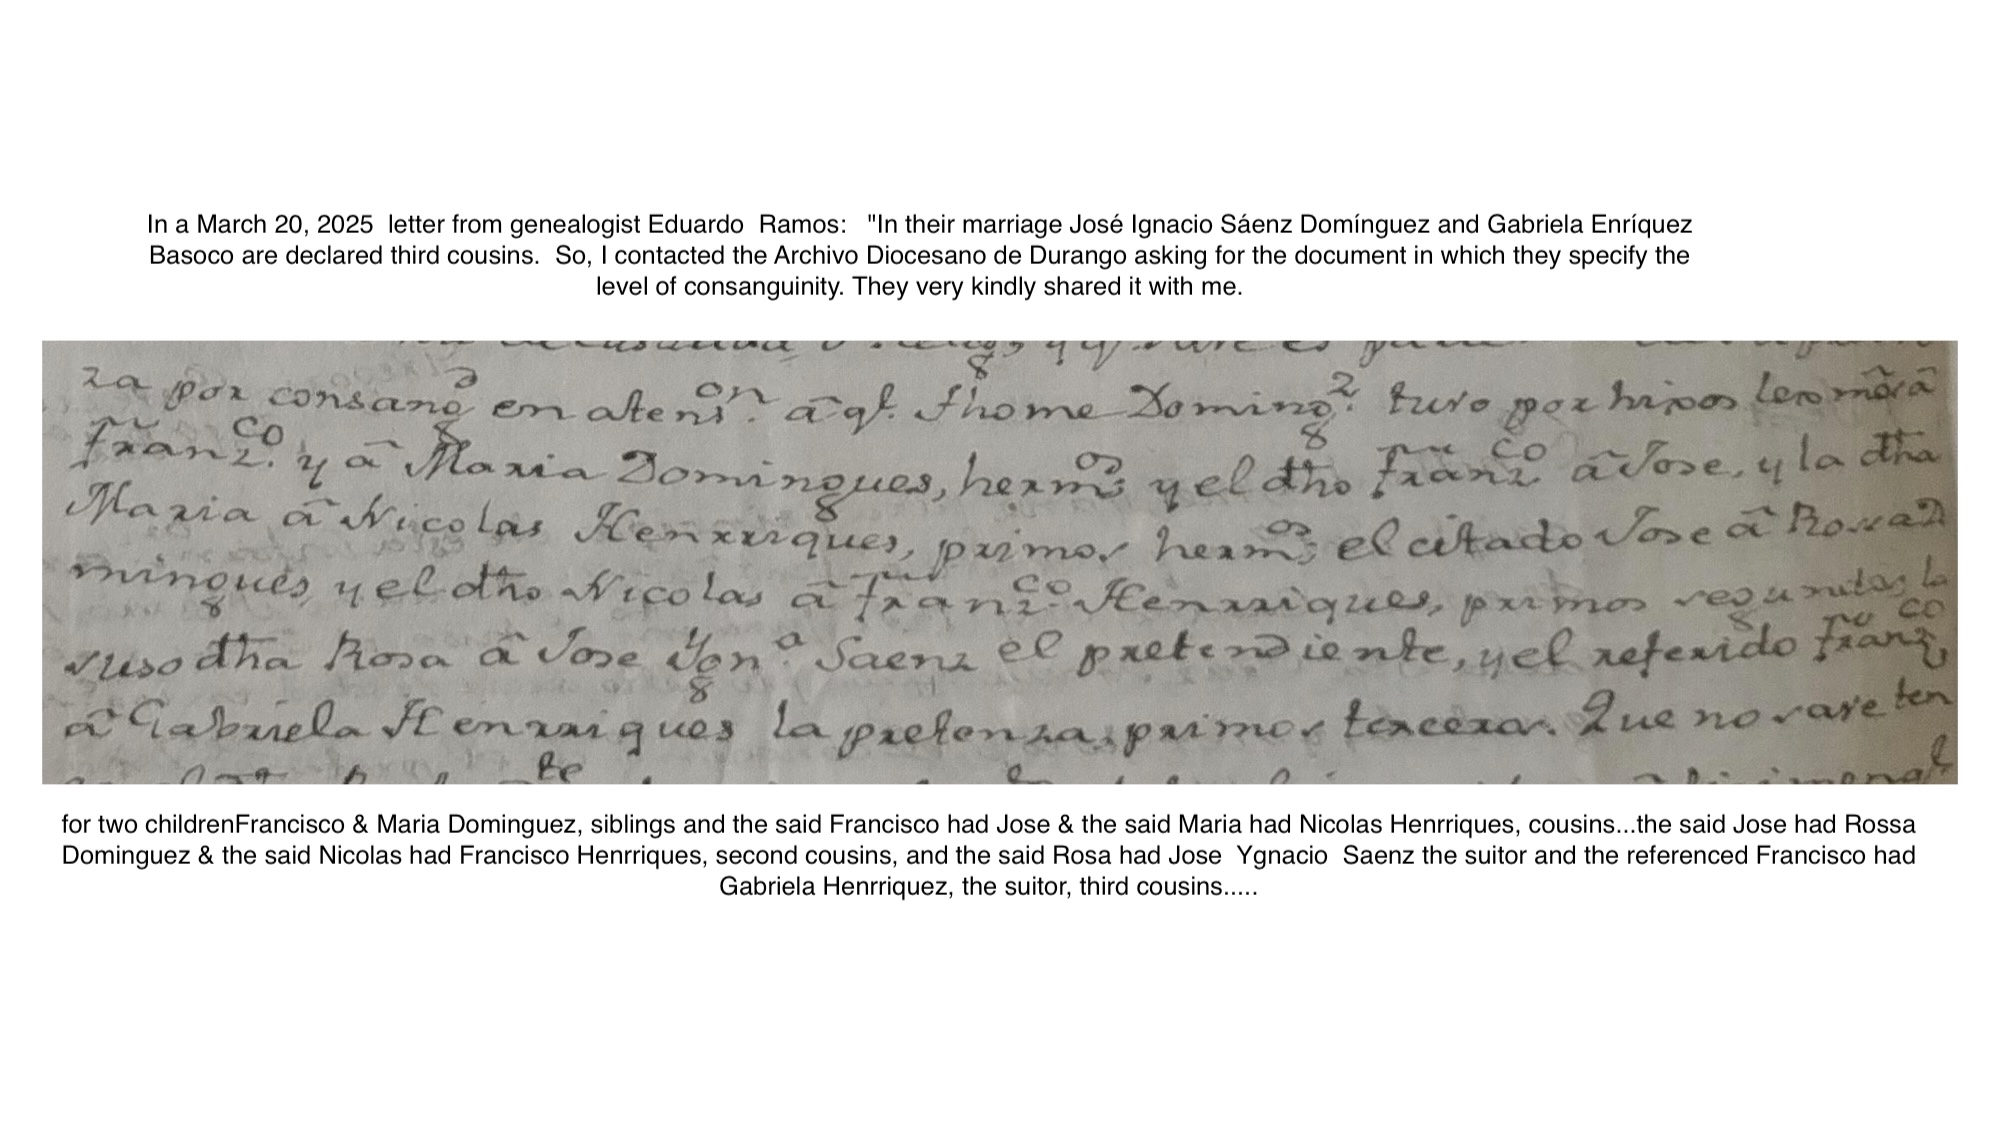 In a March 20, 2025 letter from genealogist Eduardo Ramos: "In their marriage José Ignacio Sáenz Domínguez and Gabriela Enríquez
Basoco are declared third cousins. So, I contacted the Archivo Diocesano de Durango asking for the document in which they specify the
level of consanguinity. They very kindly shared it with me.
za por consangd en atensn. â qe. Thome Doming2. tuvo por hijos
Franzco. y â Maria Domingues, hermos y el dho Franzco â Jose, y la dha
Maria â Nicolas Henrriques, primos hermos, el citado Jose â Rossa Do
mingues, y el dho Nicolas â Franzco. Henrriques, primos segundos, la
suso dha Rosa â Jose Ygna Saenz el pretendiente, y el referido Franzco
â Gabriela Henrriques la pretenza, primos terceros. Que no save ten
for two childrenFrancisco & Maria Dominguez, siblings and the said Francisco had Jose & the said Maria had Nicolas Henrriques, cousins...the said Jose had Rossa
Dominguez & the said Nicolas had Francisco Henrriques, second cousins, and the said Rosa had Jose Ygnacio Saenz the suitor and the referenced Francisco had
Gabriela Henrriquez, the suitor, third cousins.....